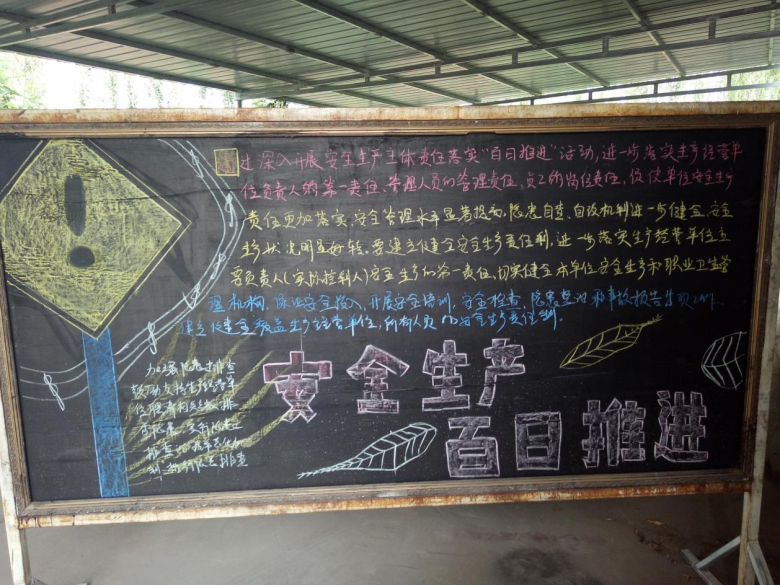 通过深入开展安全生产主体责任落实“百日推进”活动,进一步落实生产经营单
位负责人的第一责任、管理人员的管理责任、员工的岗位责任,促使单位安全生产
责任更加落实、安全管理水平显著提高,隐患自查、自改机制进一步健全,安全
生产状况明显好转。要建立健全安全生产责任制,进一步落实生产经营单位主
要负责人(实际控制人)安全生产的第一责任,切实健全本单位安全生产和职业卫生管
理机构,保证安全投入、开展安全培训、安全检查、隐患整改和事故报告等项工作,
建立健全覆盖生产经营单位,所有人员的安全生产责任制。
加强隐患排查
鼓励支持生产经营单
安全生产
百日推进